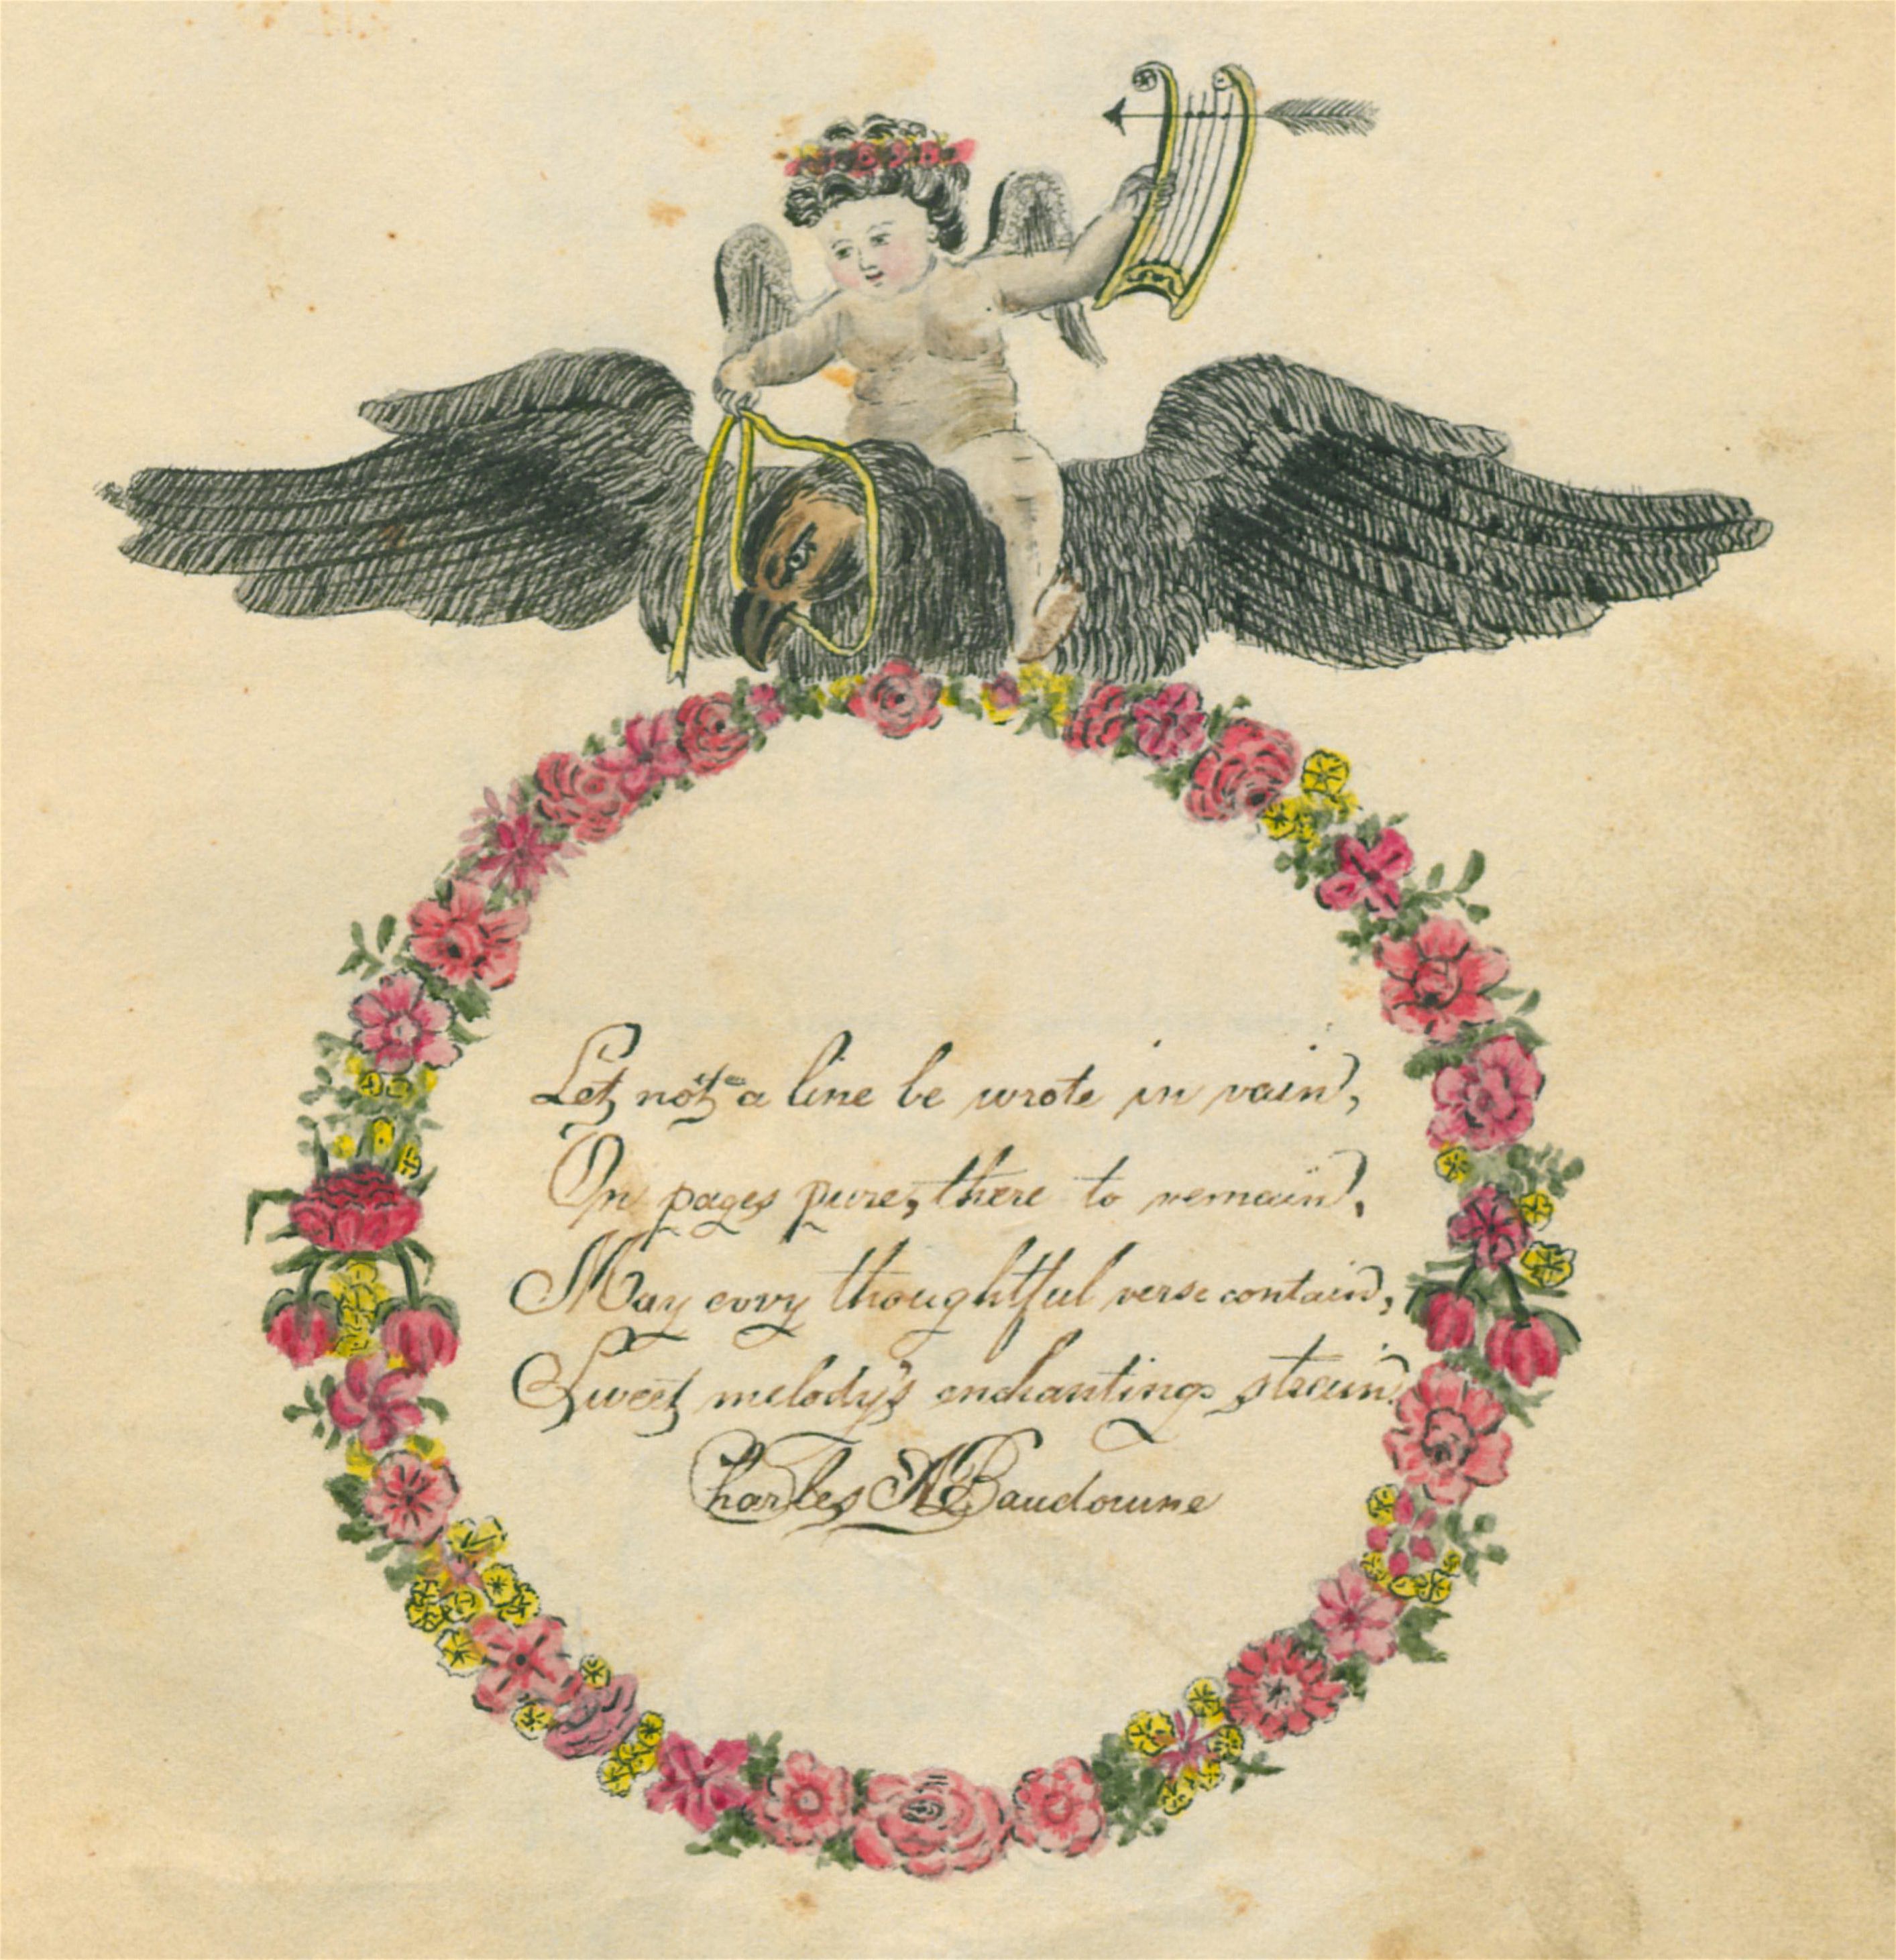 Let not a line be wrote in vain,
On pages pure, there to remain,
May evry thoughtful verse contain,
Sweet melody's enchanting strain.
Charles A Baudouine